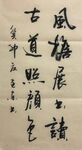 風檐展書讀
古道照顏色